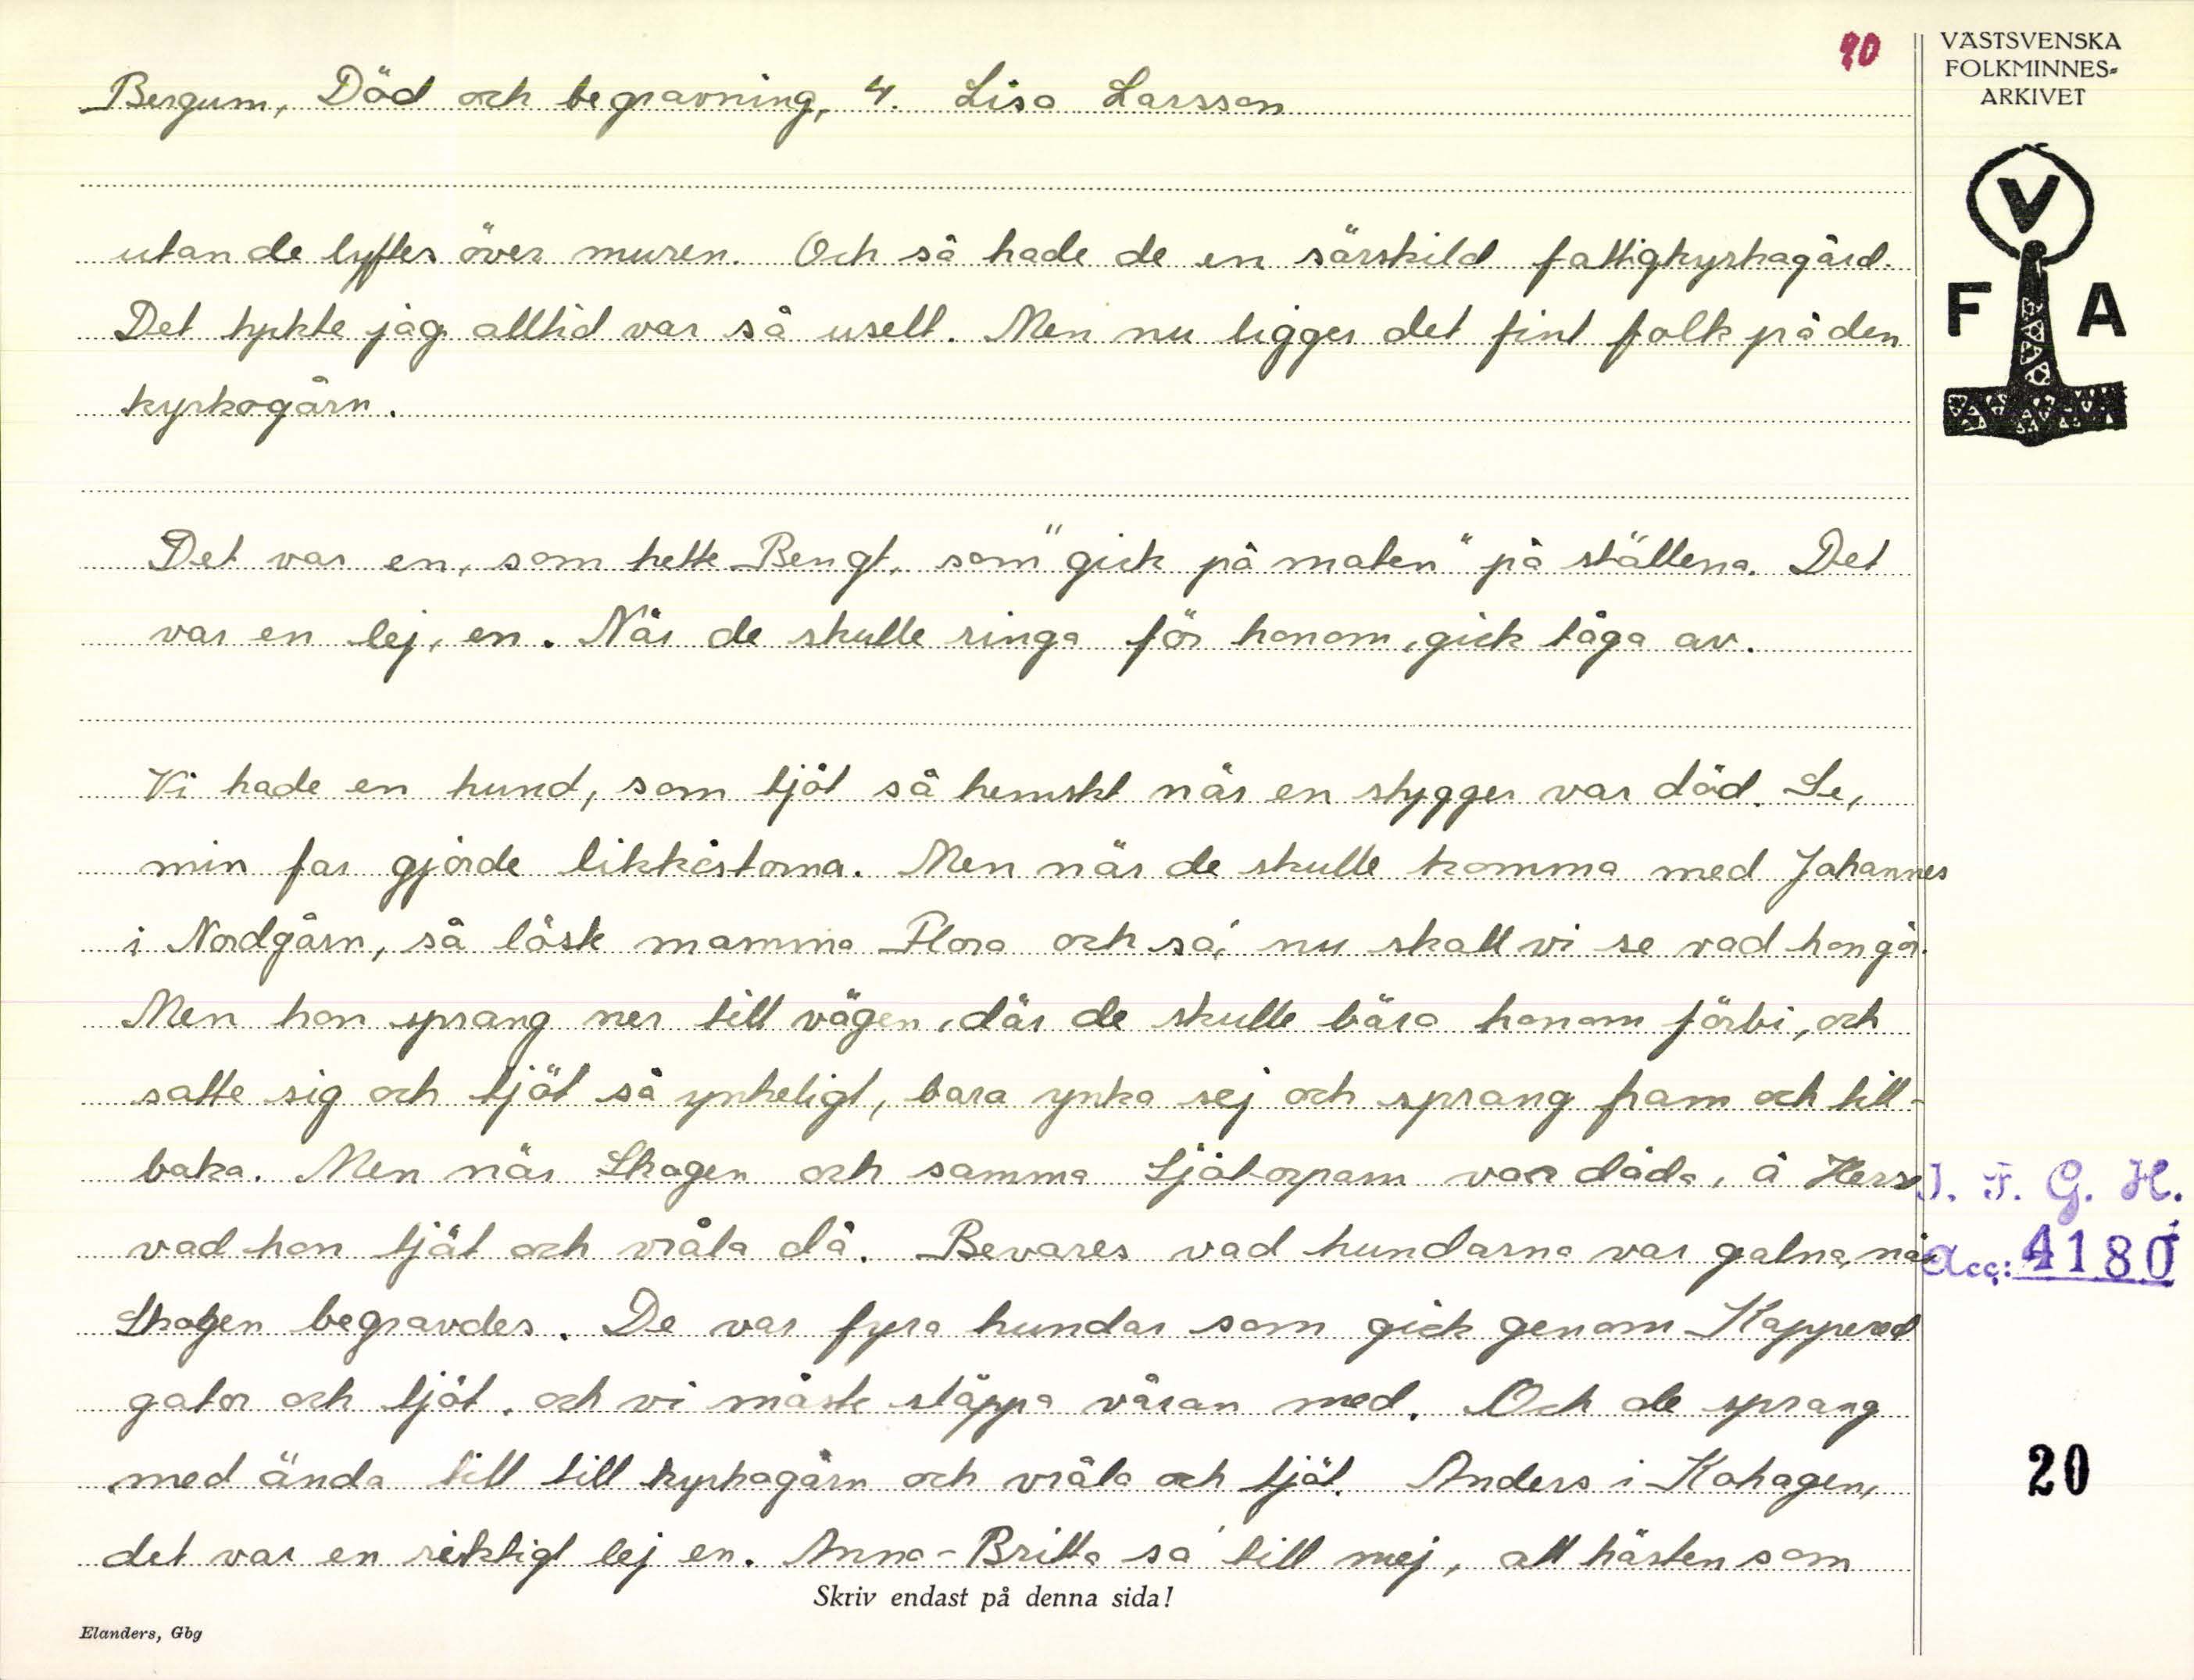 20
VÄSTSVENSKA
FOLKMINNES-
ARKIVET
V
F A
Bergum, Död och begravning, 4. Lisa Larsson
utan de lyftes över muren. Och så hade de en särskild fattigkyrkagård.
Det tykte jag alltid var så uselt. Men nu ligger det fint folk på den
kyrkogårn.
Det var en, som hette Bengt, som "gick på maten" på ställena. Det
var en lej, en. När de skulle ringa för honom, gick tåga av.
Vi hade en hund, som tjöt så hemskt när en stygger var död. Se,
min far gjorde likkistorna. Men när de skulle komma med Johannes
i Nordgårn, så löste mamma Flora och sa, nu skall vi se vad hon gör.
Men hon sprang ner till vägen, där de skulle bära honom förbi, och
satte sig och tjöt så ynkeligt, bara ynka sej och sprang fram och till-
baka. Men när Skogen och samma var döda, å Herre
vad hon tjöt och vråla då. Bevares vad hundarna var galna, när
Skogen begravdes. De var fyra hundar som gick genom Kappered
gator och tjöt, och vi måste släppa våran med. Och de sprang
med ända till till kyrkagårn och vråla och tjöt. Anders i Kohagen,
det var en riktigt lej en. Anna-Britta sa till mej, att hästen som
I. F. G. H.
Acc: 4180
20
Skriv endast på denna sida!
Elanders, Gbg